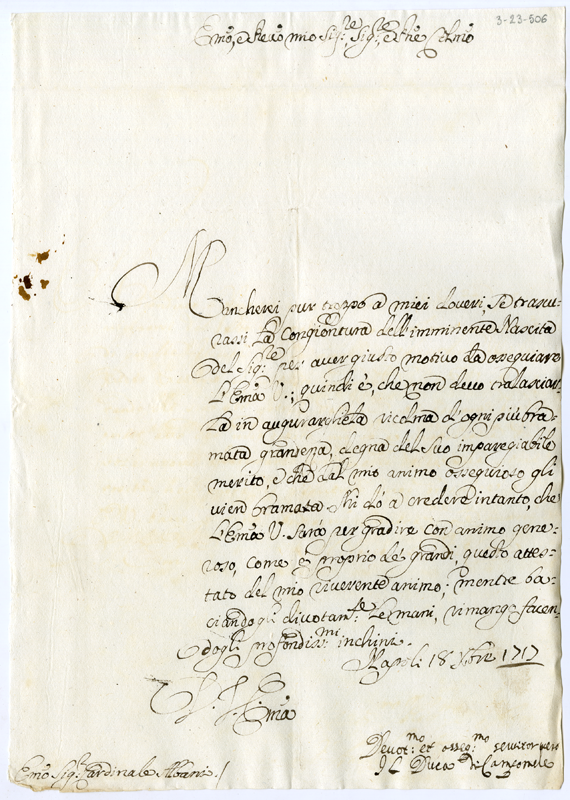 3-23-506
Emo, e Revo mio Sigre, Sigre, e Pne Colmo
Mancherei pur troppo a miei doveri, se trascu-
rassi la Congiontura dell'imminente Nascita
del Sigre per aver giusto motivo da ossequiare
l'Ema V.; quindi è, che non devo tralasciar-
la in augurargliela ricolma d'ogni più bra-
mata grandezza, degna del suo impareggiabile
merito, e che dal mio animo ossequioso gli
vien bramata. Mi dò a credere intanto, che
l'Ema V. sarà per gradire con animo gene-
roso, come è proprio de' grandi, questo attes-
tato del mio riverente animo; mentre ba-
ciandogli divotamte le mani, rimango facen-
dogli profondissmi inchini.
Napoli 18 Xbre 1717
Ema
Devotmo et osseqmo servitor vero
Il Duca di
Emo Sigr Cardinale Albani.